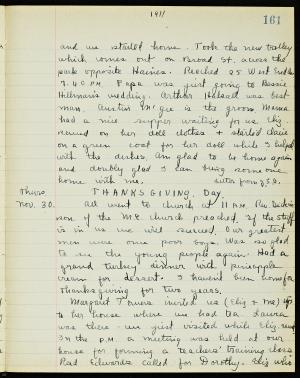 1911
161
and we started home. Took the new trolley
which comes out on Broad St. across the
park opposite Haines. Reached 25 West End Ave
7.40 P.M. Papa was just going to Bessie
wedding. Arthur was best
man. Austin McGee is the groom. Mama
had a nice supper waiting for us. Eliz.
sewed on her doll clothes + started
on a green coat for her doll while I helped
with the dishes. Am glad to be home again
and doubly glad I can bring someone
home with me. Letter from
Thurs.
Nov. 30.
THANKSGIVING DAY
All went to church at 11 A.M. Rev.
son of the M.E. church preached. If the stuff
is in us we will succeed. Our greatest
men were once poor boys. Was so glad
to see the young people again. Had a
grand turkey dinner with pineapple
cream for dessert. I haven't been home for
Thanksgiving for two years.
Margaret Towers invited us (Eliz + me) up
to her house where we had tea. Laura
was there - we just visited while Eliz.
In the P.M. a meeting was held at our
house for forming a teachers' training class
Rad Edwards called for Dorothy. Eliz. who